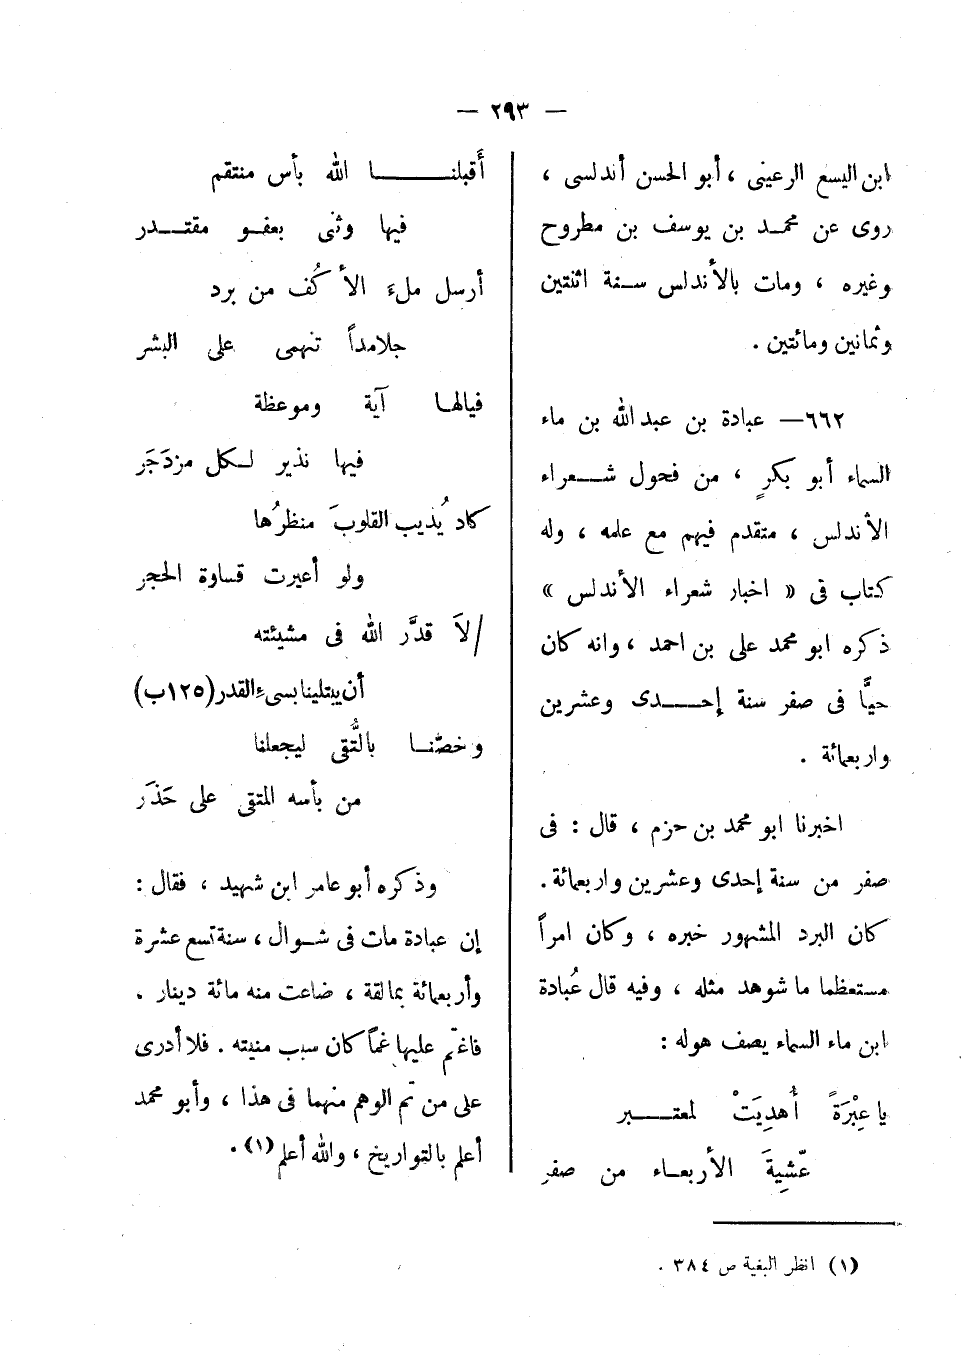 — ٢٩٣ —
ابن اليسع الرعينى ، أبو الحسن أندلسى ،
روى عن محمد بن يوسف بن مطروح
وغيره ، ومات بالأندلس سنة اثنتين
وثمانين ومائتين .
٦٦٢— عبادة بن عبد الله بن ماء
السماء أبو بكرٍ ، من فحول شعراء
الأندلس ، متقدم فيهم مع علمه ، وله
كتاب فى « اخبار شعراء الأندلس »
ذكره ابو محمد على بن احمد ، وانه كان
حيًّا فى صفر سنة إحدى وعشرين
واربعمائة .
اخبرنا ابو محمد بن حزم ، قال : فى
صفر من سنة إحدى وعشرين واربعمائة .
كان البرد المشهور خبره ، وكان امراً
مستعظما ما شوهد مثله ، وفيه قال عُبادة
ابن ماء السماء يصف هوله :
يا عِبْرَةً أُهدِيَتْ لمعتبر
عّشِيةَ الأربعاء من صفر
أَقبلنا الله بأس منتقم
فيها وثنى بعفو مقتدر
أرسل ملءَ الأكُف من برد
جلامداً تنهمى على البشر
فيالها آية وموعظة
فيها نذير لكل مزدَجَر
كاد يُذيب القلوبَ منظرُها
ولو أعيرت قساوة الحجر
/لاَ قدَّر الله فى مشيئته
أن يبتلينا بسىءِ القدر (١٢٥ب)
وخصّنا بالتُّقى ليجعلنا
من بأسه المتقى على حَذَر
وذكره أبو عامر ابن شهيد ، فقال :
إن عبادة مات فى شوال ، سنة تسع عشرة
وأربعمائة بمالقة ، ضاعت منه مائة دينار .
فاغتمّ عليها غمًّا كان سبب منيته . فلا أدرى
على من تم الوهم منهما فى هذا ، وأبو محمد
أعلم بالتواريخ ، والله أعلم (١) .
(١) انظر البغية ص ٣٨٤ .